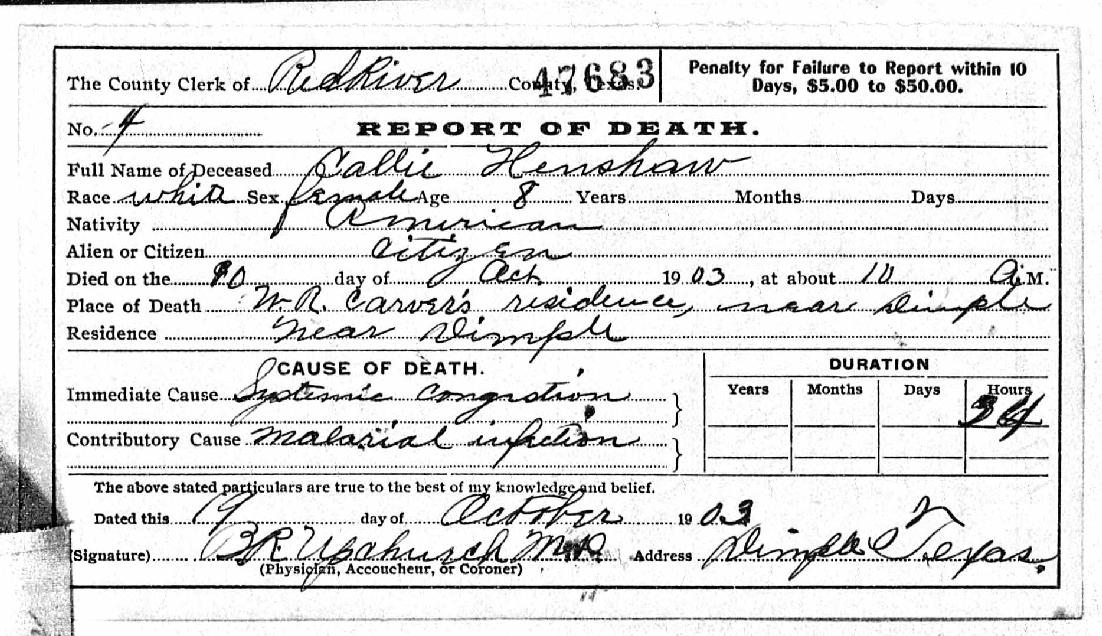 The County Clerk of Red River County, Texas. 47683
Penalty for Failure to Report within 10
Days, $5.00 to $50.00.
No. 4 REPORT OF DEATH.
Full Name of Deceased Callie Henshaw
Race white Sex female Age 8 Years Months Days
Nativity American
Alien or Citizen citizen
Died on the 10 day of Oct. 1903, at about 10 A.M.
Place of Death W. R. Carver's residence, near Dimple
Residence near Dimple
CAUSE OF DEATH. DURATION
Immediate Cause Systemic congestion Years Months Days Hours
Contributory Cause malarial infection
The above stated particulars are true to the best of my knowledge and belief.
Dated this 19 day of October 1903
(Signature) B R Upchurch M.D. Address Dimple Texas.
(Physician, Accoucheur, or Coroner)